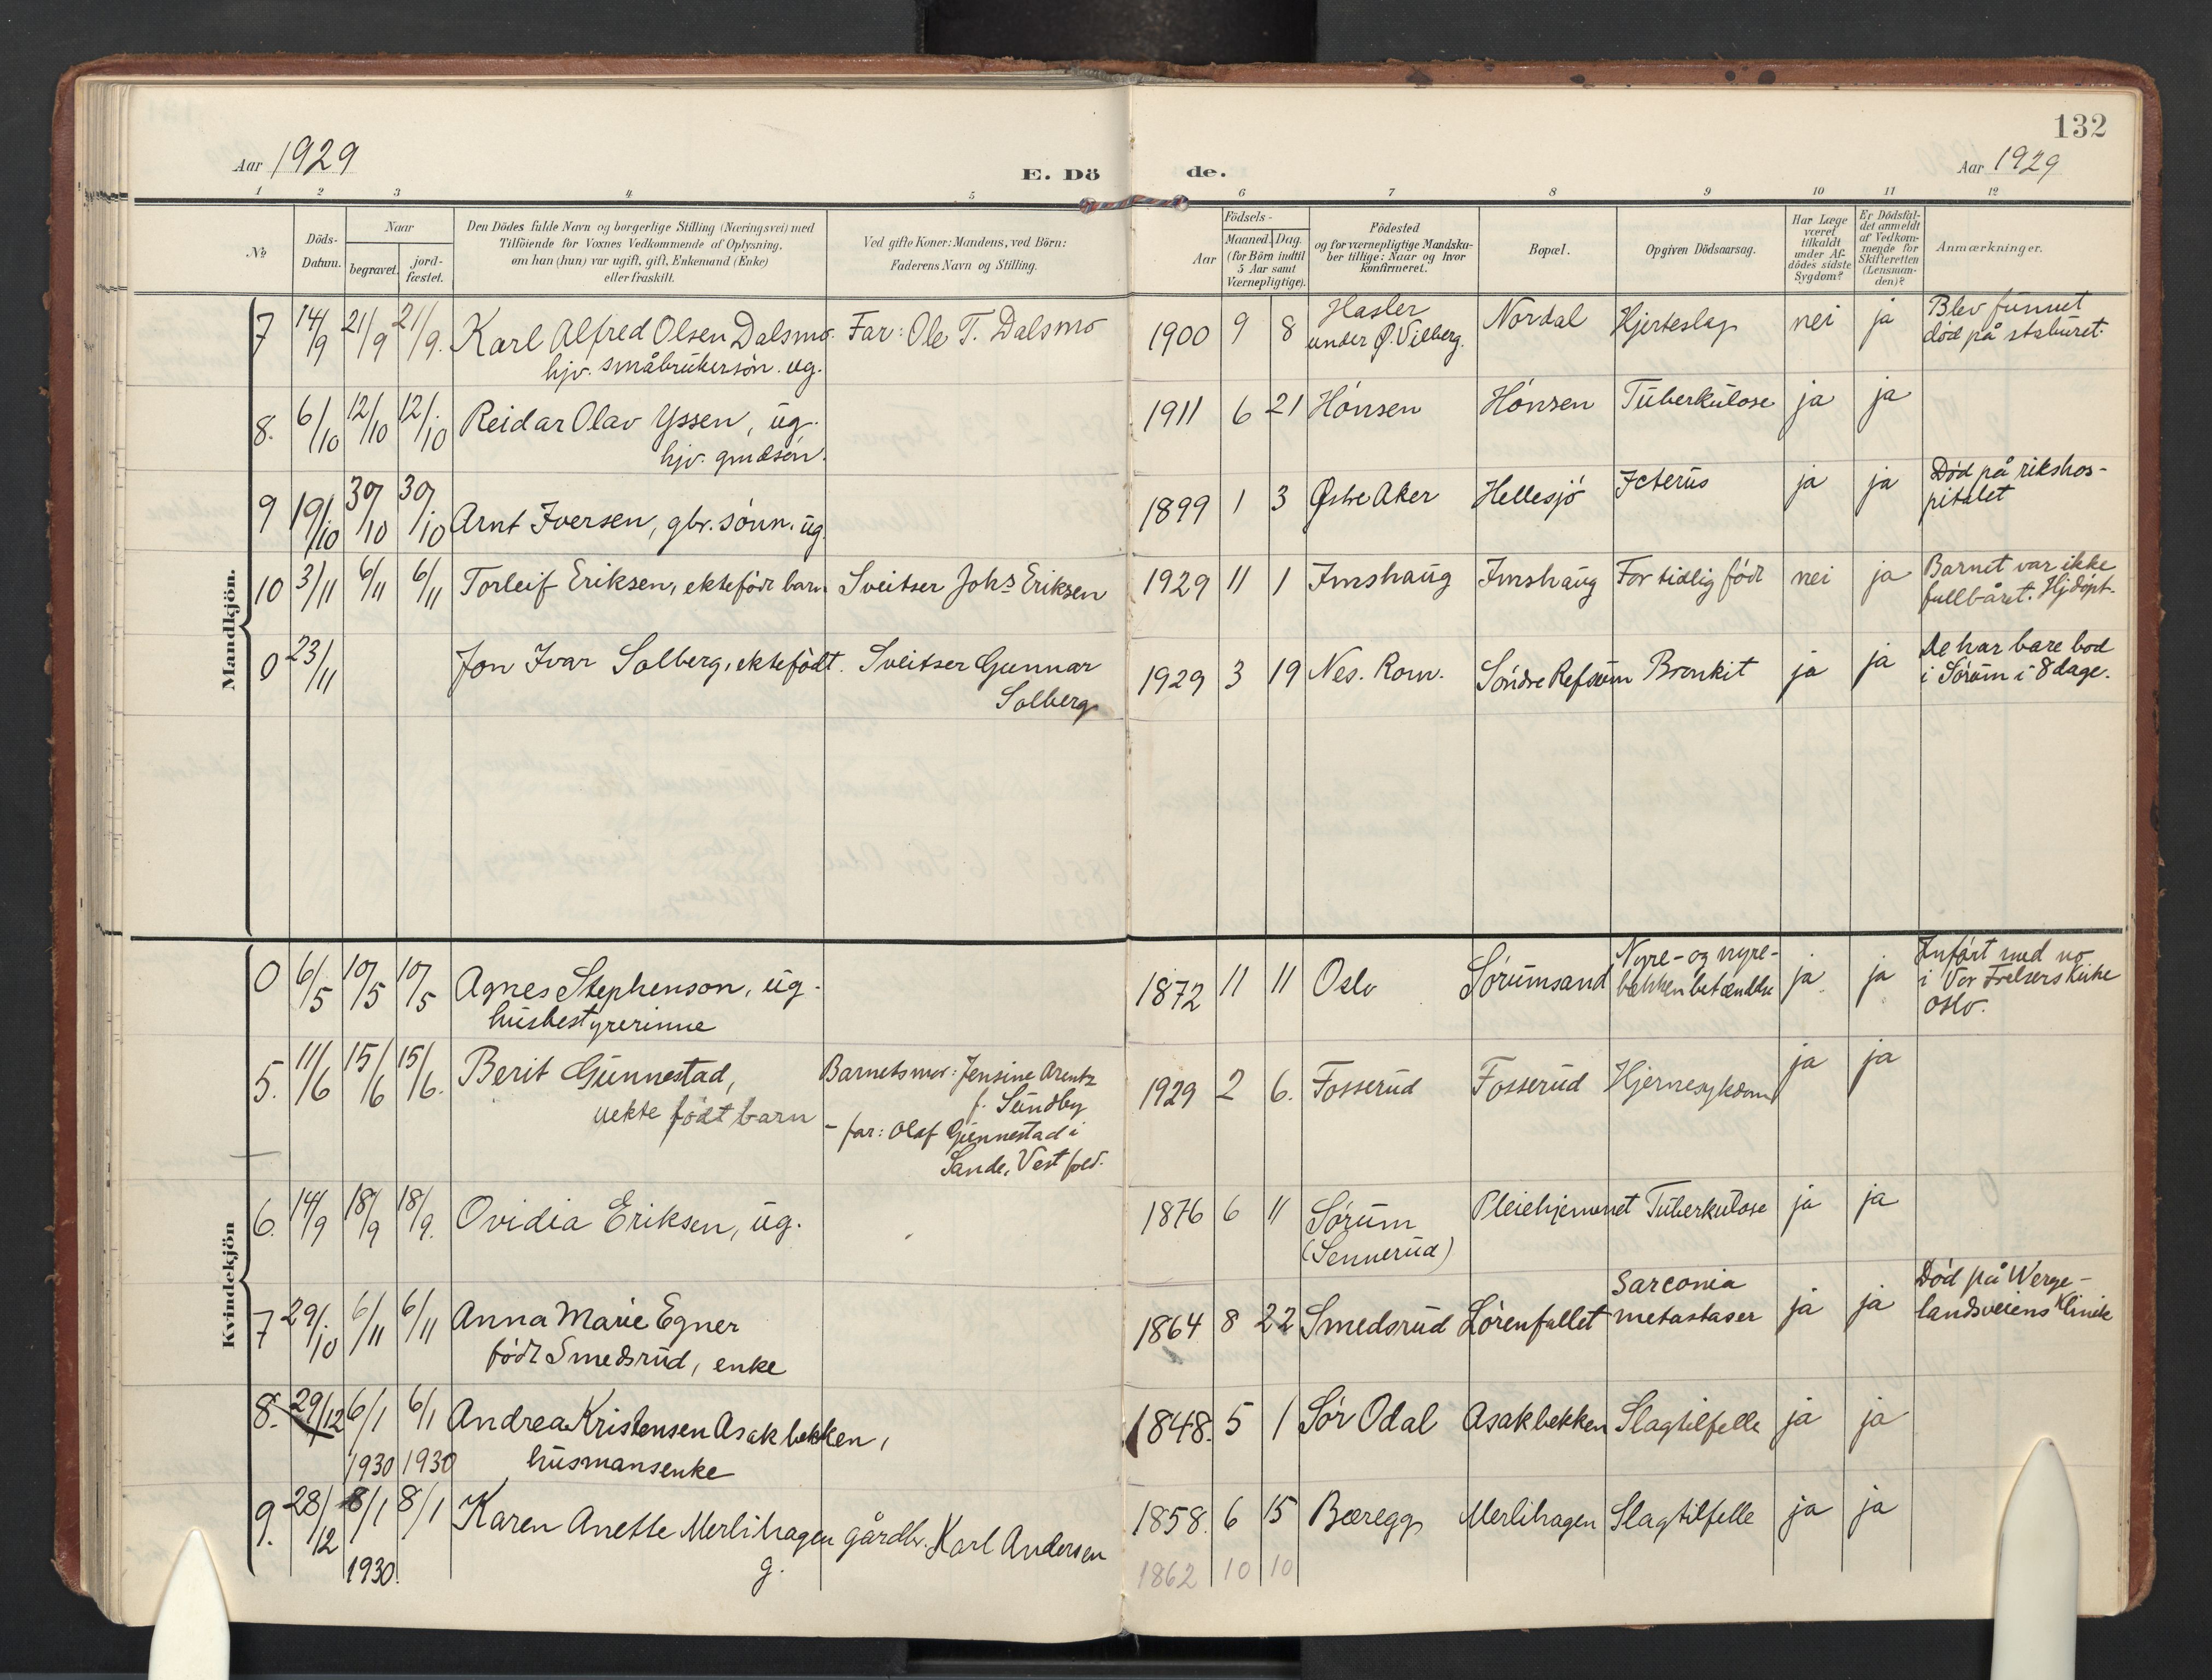 132
Aar 1929
E. Döde.
Aar 1929
1 2 3 4 5 6 7 8 9 10 11 12
No
Döds-Datum.
Naar
begravet.
jord-fæstet.
Den Dödes fulde Navn og borgerlige Stilling (Næringsvei) med
Tilföiende for Voxnes Vedkommende af Oplysning,
om han (hun) var ugift, gift, Enkemand (Enke)
eller fraskilt.
Ved gifte Koner: Mandens, ved Börn:
Faderens Navn og Stilling.
Födsels-
Aar
Maaned. Dag.
(for Börn indtil
5 Aar samt
Værnepligtige).
Födested
og for værnepligtige Mandska-
ber tillige: Naar og hvor
konfirmeret.
Bopæl.
Opgiven Dödsaarsag.
Har Læge
været
tilkaldt
under Af-
dödes sidste
Sygdom?
Er Dödsfal-
det anmeldt
af Vedkom-
mende for
Skifteretten
(Lensman-
den)?
Anmærkninger.
Mandkjön.
7 14/9 21/9 21/9. Karl Alfred Olsen Dalsmo. Far: Ole T. Dalsmo 1900 9 8 Hasler Nordal Hjerteslag nei ja Blev funnet
hjv. småbrukersön. ug. under Ø. Vilberg. død på staburet.
8. 6/10 12/10 12/10 Reidar Olav Yssen, ug. 1911 6 21 Hónsen Hónsen Tuberkulose ja ja
hjv. gmdsón.
9 19/10 30/10 30/10 Arnt Iversen, gbr. sónn. ug. 1899 1 3 Østre Aker Hellesjó Icterus ja ja Død på rikshos-
pitalet
10 3/11 6/11 6/11 Torleif Eriksen, ektefödt barn Sveitser Johs Eriksen 1929 11 1 Imshaug Imshaug For tidlig födt nei ja Barnet var ikke
fullbåret. Hjdópt.
0 23/11 Jon Ivar Solberg, ektefödt. Sveitser Gunnar 1929 3 19 Nes. Rom. Sóndre Refsum Bronkit ja ja De har bare bod
Solberg i Sórum i 8 dage.
Kvindekjön
0 6/5 10/5 10/5 Agnes Stephenson, ug. 1872 11 11 Oslo Sórumsand Nyre- og nyre- ja ja Infórt med no
husbestyrerinne bekkenbetændelse i Vor Frelsers Kirke
Oslo.
5. 11/6 15/6 15/6. Berit Gunnestad, Barnets mor: Jensine Arentz 1929 2 6. Fosserud Fosserud Hjernesykdom ja ja
uekte födt barn f. Sundby
- far: Olaf Gunnestad i
Sande, Vestfold.
6. 14/9 18/9 18/9. Ovidia Eriksen, ug. 1876 6 11 Sórum Pleiehjemmet Tuberkulose ja ja
(Sennerud)
7 29/10 6/11 6/11 Anna Marie Egner 1864 8 22 Smedsrud Lórenfallet Sarconia ja ja Død på Werge-
födt Smedsrud, enke metastaser landsveiens Klinik
8. 29/12 6/1 6/1 Andrea Kristensen Asakbekken, 1848. 5 1 Sór Odal Asakbekken Slagtilfelle ja ja
1930 1930 husmansenke
9. 28/12 8/1 8/1 Karen Anette Merlihagen gårdbr. Karl Andersen 1858. 6 15 Bæregg Merlihagen Slagtilfelle ja ja
1930. g. 1862 10 10